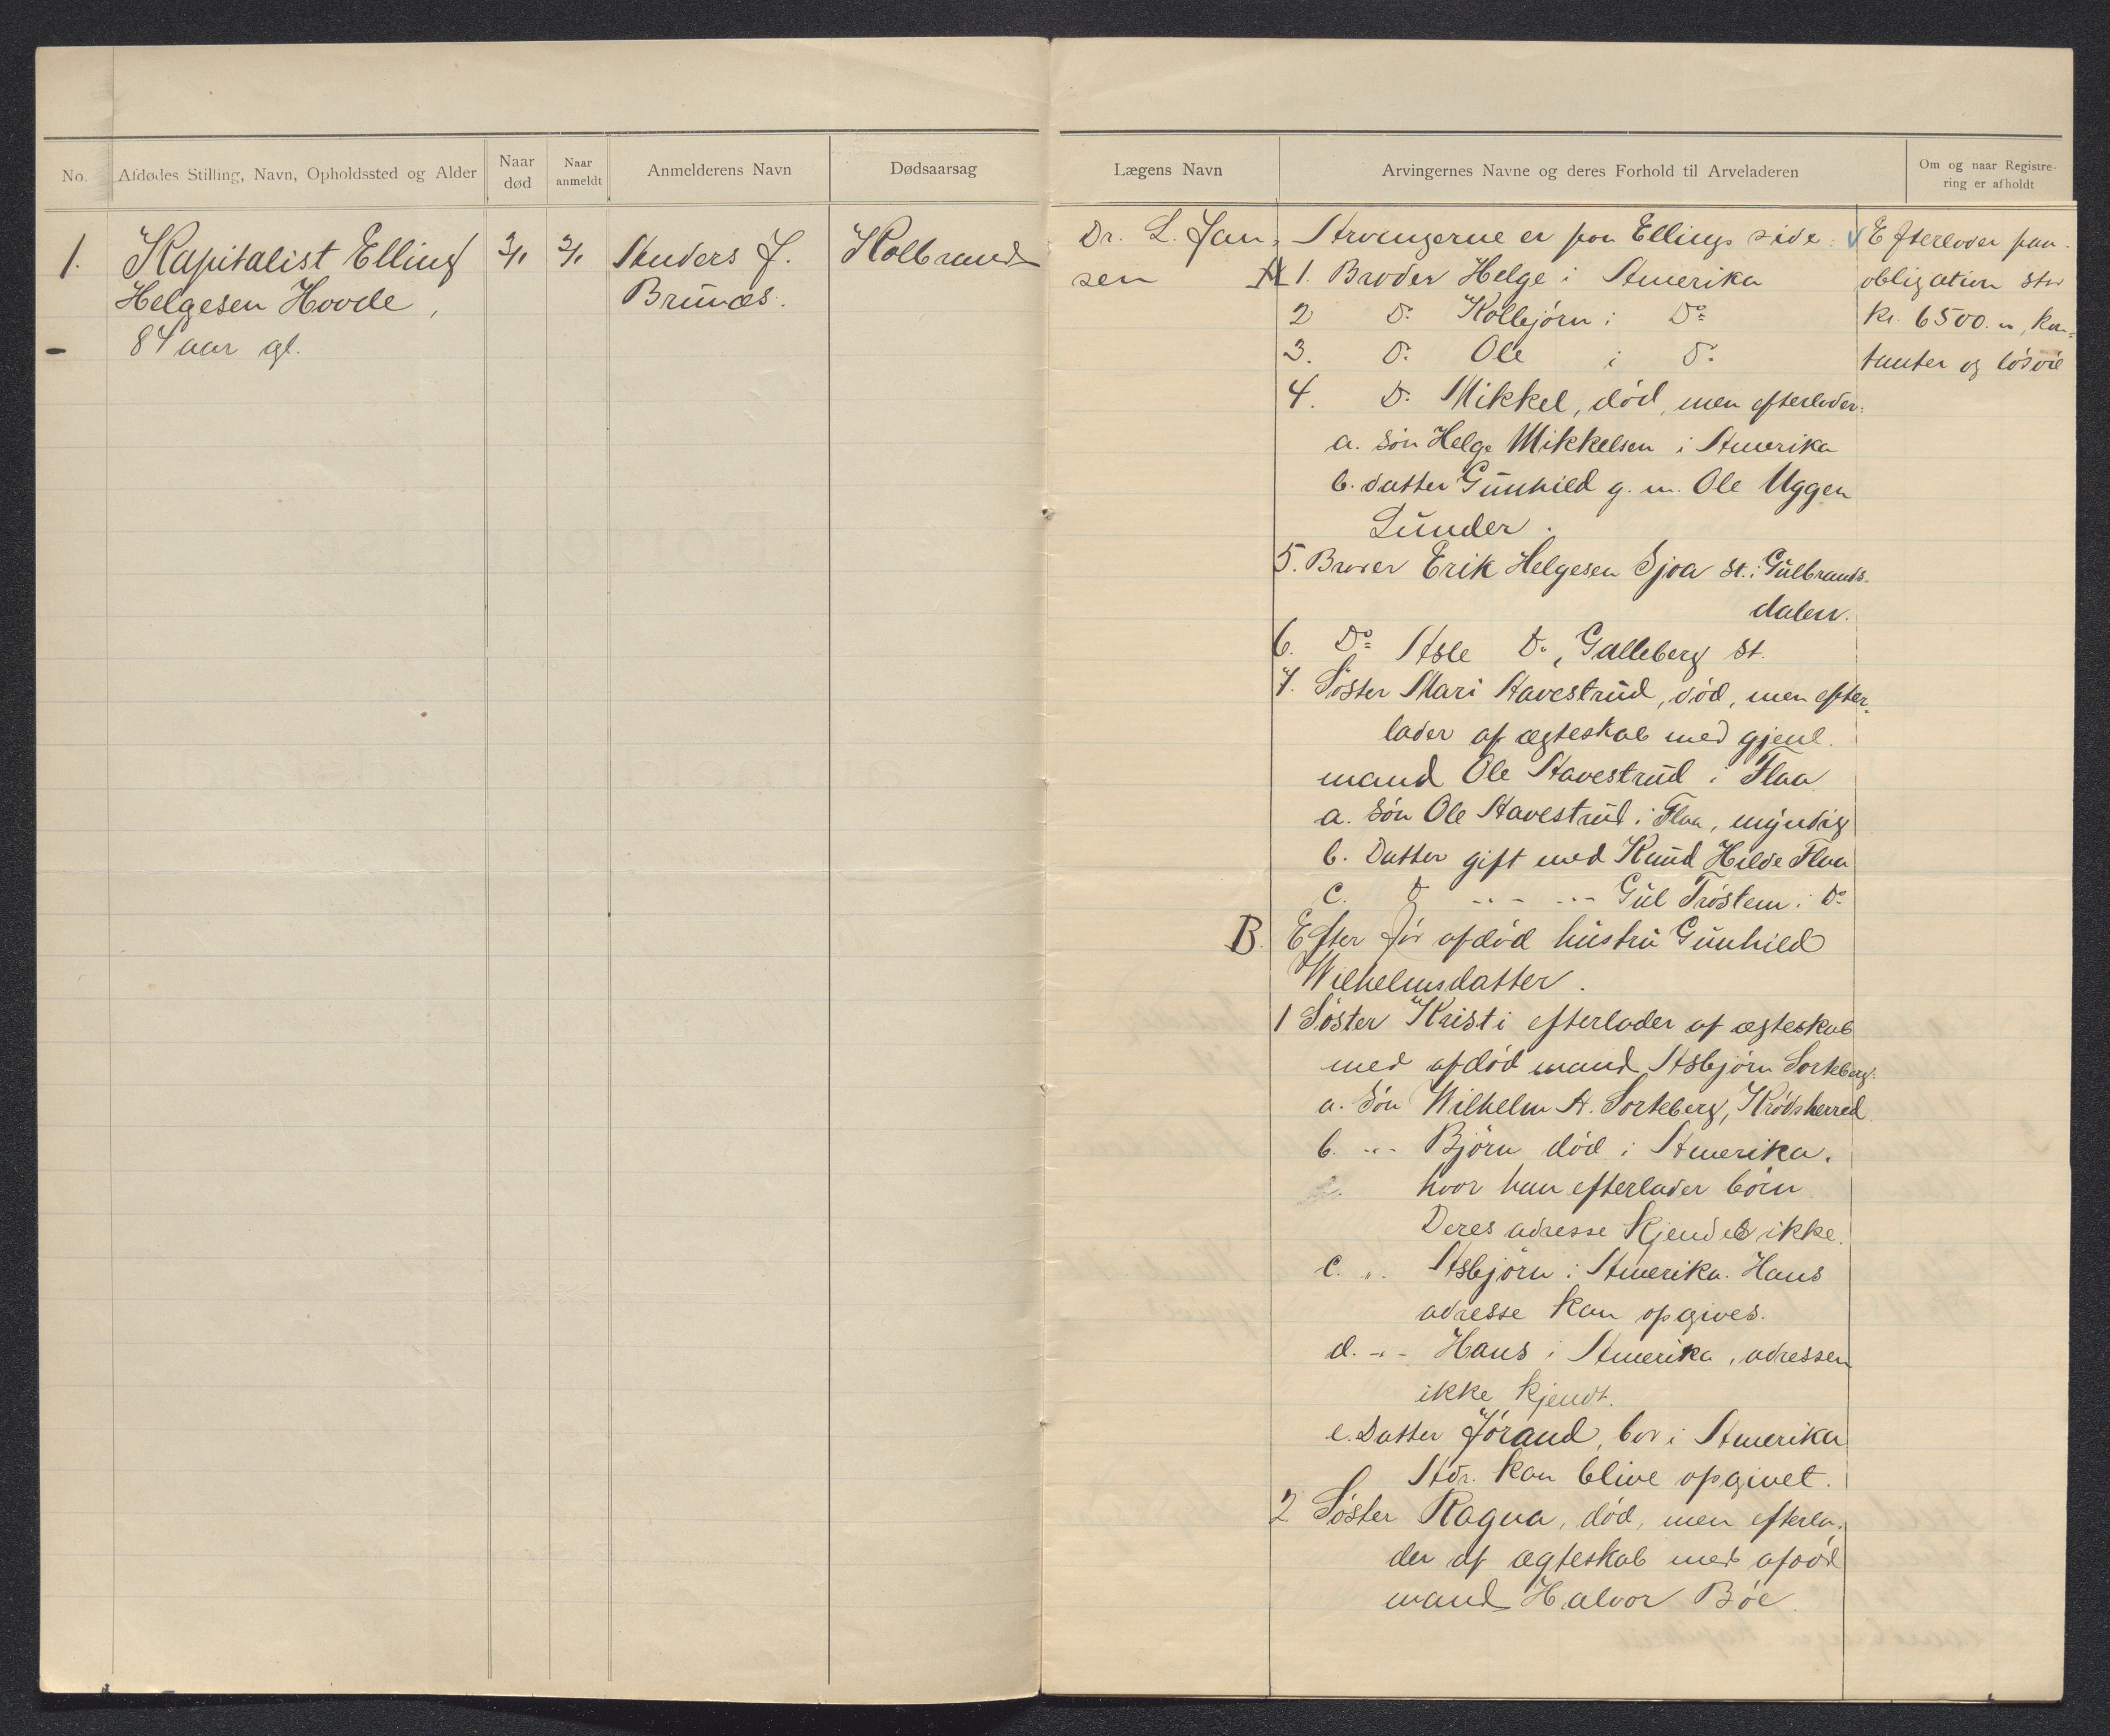 No.
Afdødes Stilling, Navn, Opholdssted og Alder
Naar død
Naar anmeldt
Anmelderens Navn
Dødsaarsag
Lægens Navn
Arvingernes Navne og deres Forhold til Arveladeren
Om og naar Registre-
ring er afholdt
1. Kapitalist Elling
Helgesen Hovde,
84 aar gl.
Anders J.
Brunæs.
Kolbrand
Dr. L. Jan-
sen
Arvingerne er paa Ellings side:
A 1. Broder Helge i Amerika
2 Do Kolbjørn i Do
3. Do Ole i Do
4. Do Mikkel, død, men efterlader:
a. Søn Helge Mikkelsen i Amerika
b. datter Gunhild g. m. Ole Uggen
Lunder.
5. Broder Erik Helgesen Sjoa st. i Gulbrands-
dalen.
6. Do Asle Do, Galleberg st.
7. Søster Mari Stavestrud, død, men efter-
lader af ægteskab med gjenl.
mand Ole Stavestrud i Flaa
a. Søn Ole Stavestrud i Flaa, myndig
b. Datter gift med Knud Hilde Flaa
c. D -"- -"- Gul Trøstem i Do
B. Efter før afdød hustru Gunhild
Wilhelmsdatter.
1 Søster Kristi efterlader af ægteskab
med afdød mand Asbjørn Sorteberg:
a. Søn Wilhelm A. Sorteberg, Krødsherred.
b. -"- Bjørn død i Amerika.
hvor han efterlader børn
Deres adresse kjendes ikke.
c. " Asbjørn i Amerika. Hans
adresse kan opgives.
d. -"- Hans i Amerika, adressen
ikke kjendt.
e. Datter Jørand, bor i Amerika
Adr. kan blive opgivet.
2 Søster Ragna, død, men efterla-
der af ægteskab med afdød
mand Halvor Bøe.
Efterlader pan-
obligation stor
kr. 6500.00, kon-
tanter og løsøre